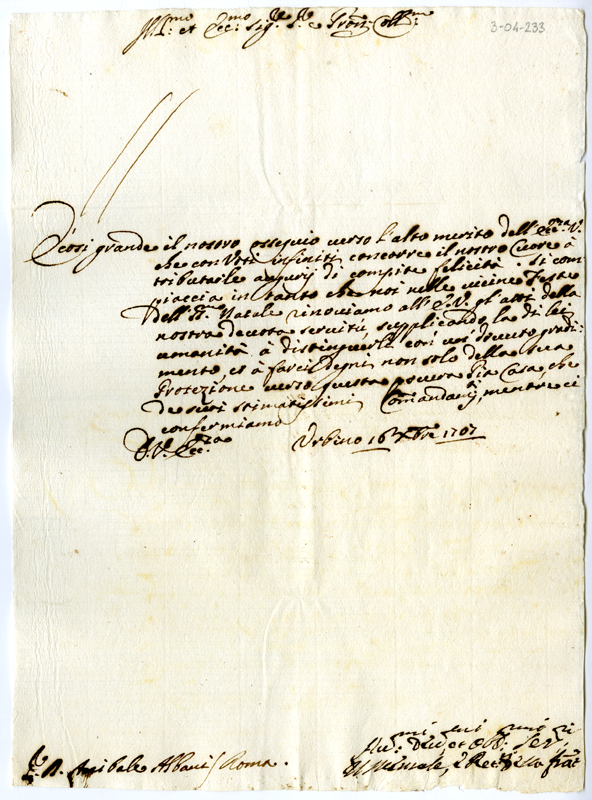 Ill.mo et Ecc.mo Sig.re S.re e Pron. Coll.mo
3-04-233
È così grande il nostro ossequio verso l'alto merito dell'Ecc.za V.
che con Voti infiniti concorre il nostro Cuore à
tributarle augurij di compita felicità. Si com
piaccia in tanto che noi nelle vicine Feste
Dell SS. Natale rinoviamo all'E.V. gl'atti della
nostra devota servitù, supplicando la di lei
umanità à distinguerli con un dovuto gradi=
mento, et à farci degni non solo della sua
Protezione verso questa povera Pia Casa, che
de suoi stimatissimi Comandi, mentre ci
confermiamo
D.V. Ecc.za Urbino 16 Xbre 1707
mi mi mi ri
Hu. Dev. et Obb. Ser.
S.r D. Anibale Albani / Roma.